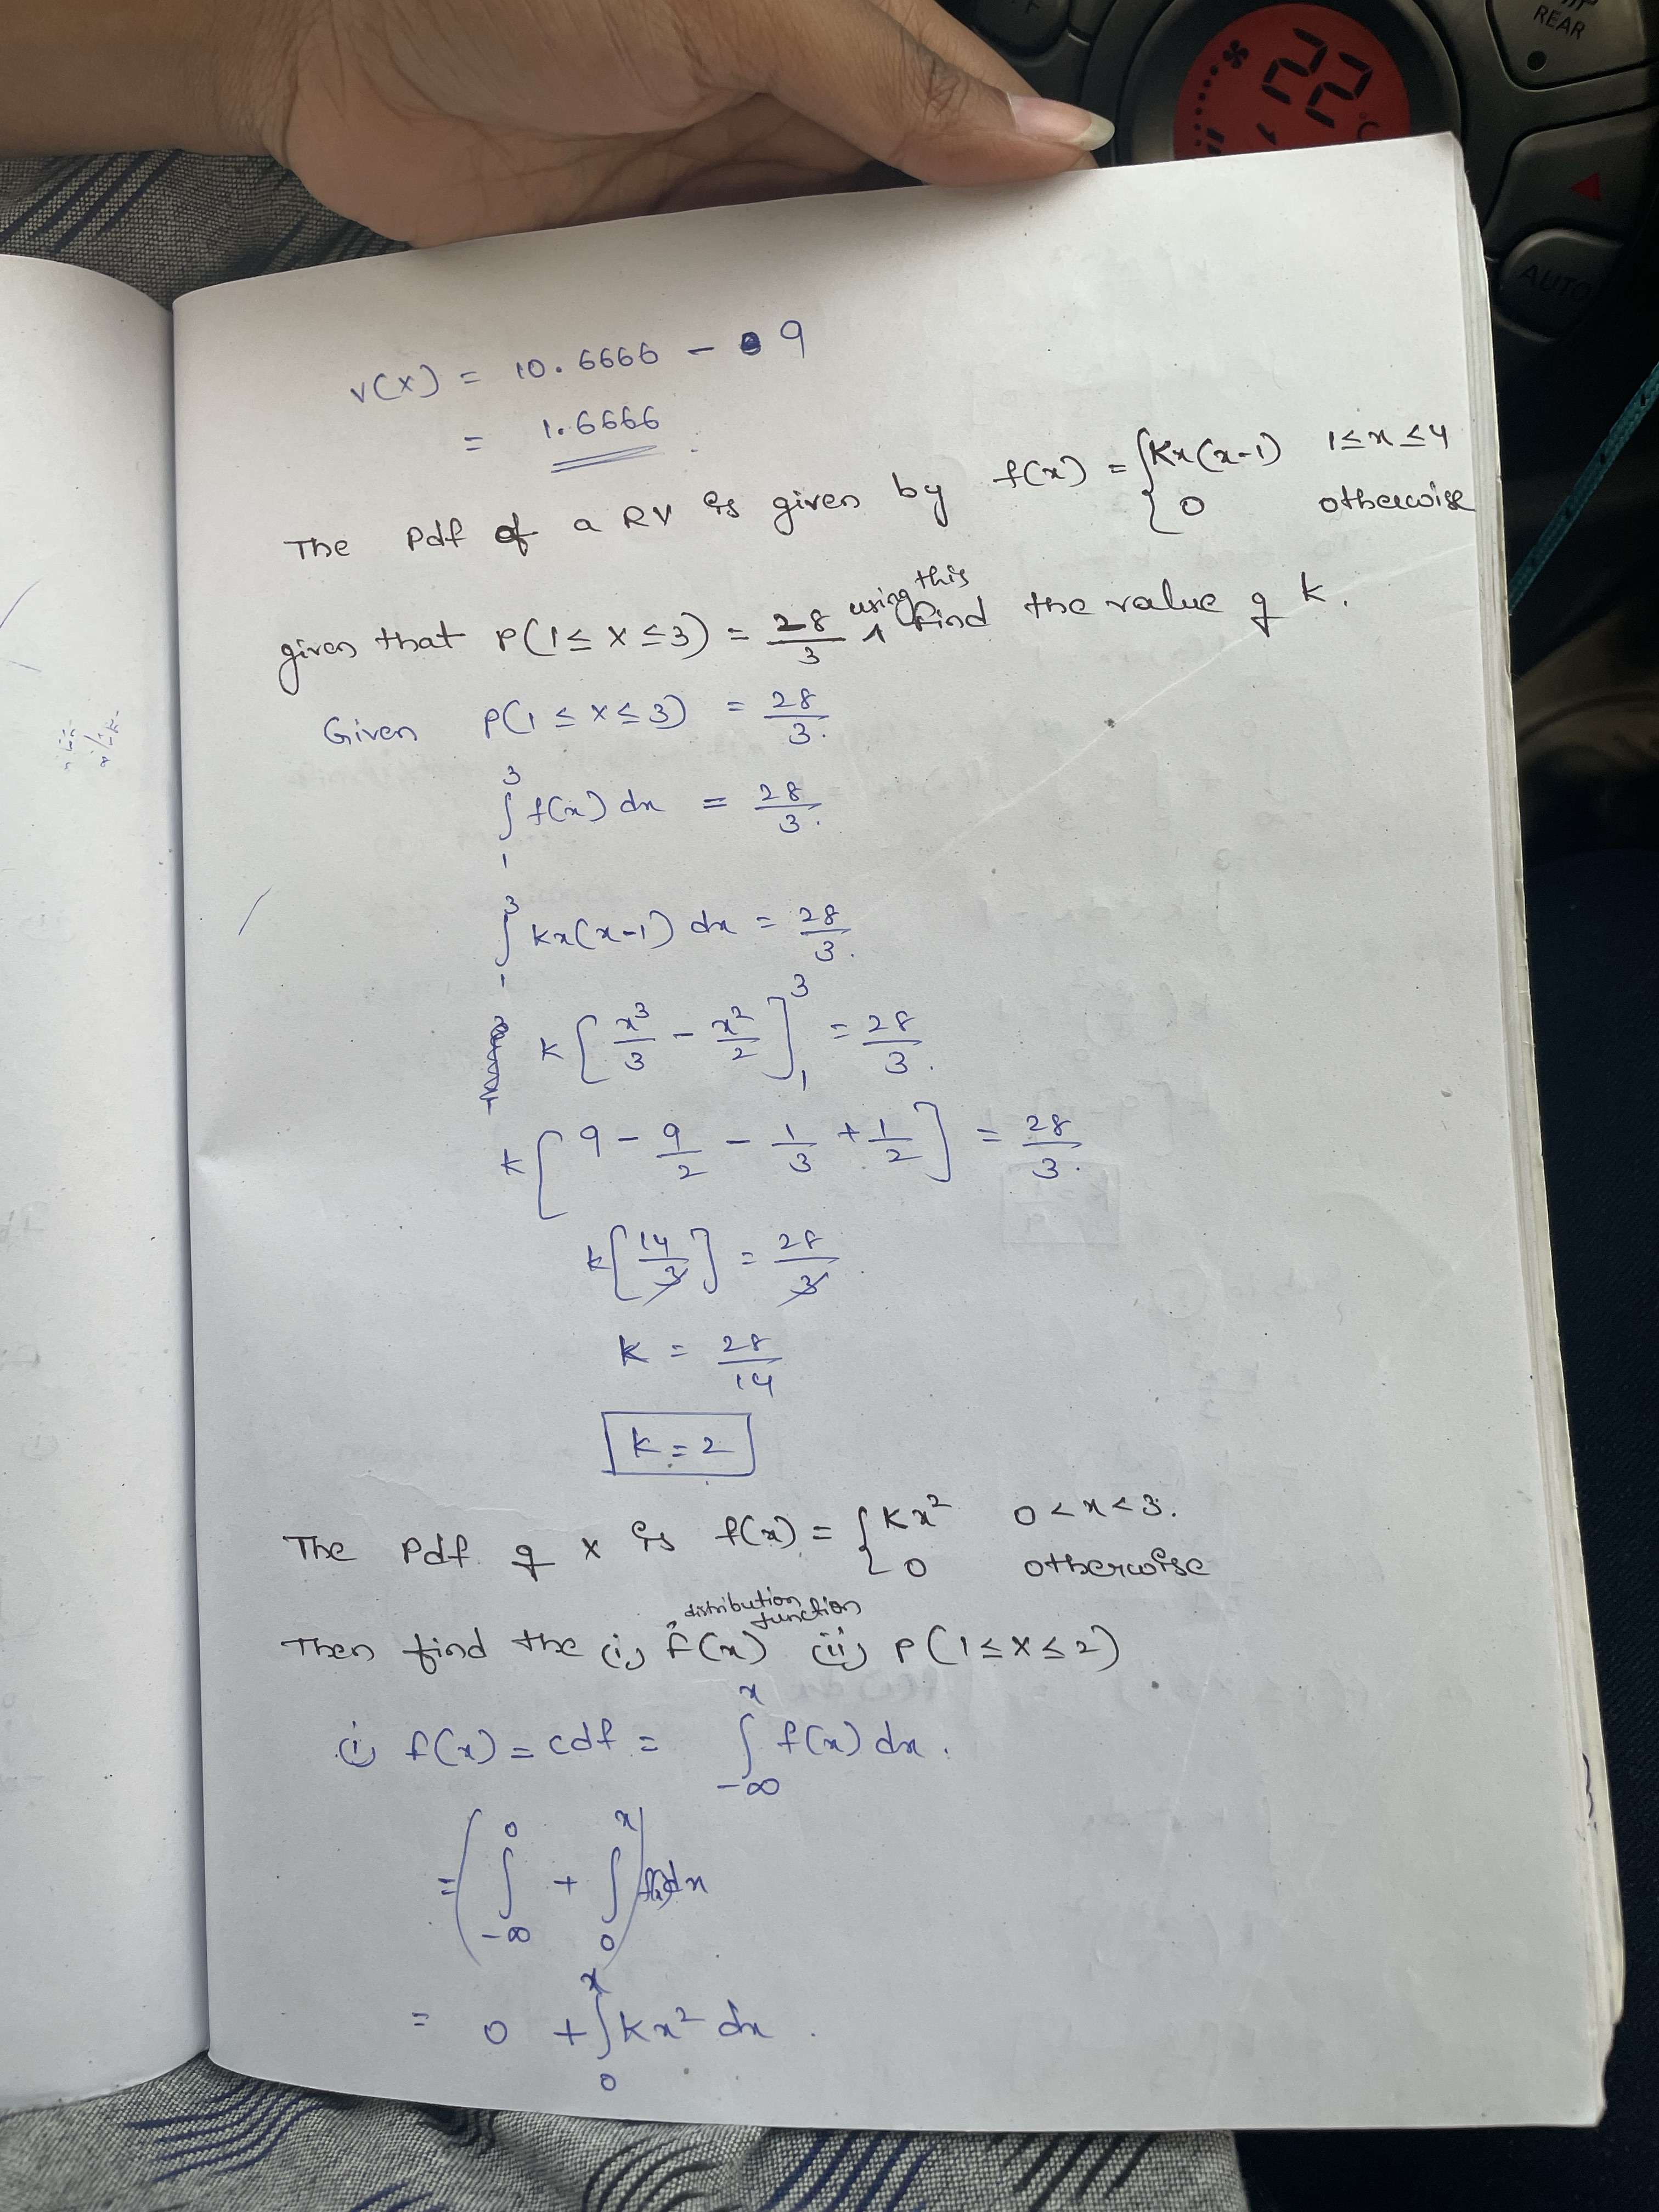 REAR
22°C
AUTO
V(X) = 10.6666 - 9
= 1.6666
The Pdf of a RV is given by f(x) = { Kx(x-1) 1≤x≤4
0 otherwise
given that P(1≤X≤3) = 28/3 using this find the value of k.
Given P(1≤X≤3) = 28/3.
∫₁³ f(x) dx = 28/3.
∫₁³ Kx(x-1) dx = 28/3.
K [x³/3 - x²/2]₁³ = 28/3.
k [9 - 9/2 - 1/3 + 1/2] = 28/3.
k [14/3] = 28/3
K = 28/14
K = 2
The Pdf of X is f(x) = { Kx² 0<x<3.
0 otherwise
distribution function
Then find the (i) F(x) (ii) P(1≤X≤2)
(i) f(x) = cdf = ∫₋∞ˣ f(x) dx.
= (∫₋∞⁰ + ∫₀ˣ) f(x) dx
= 0 + ∫₀ˣ Kx² dx.